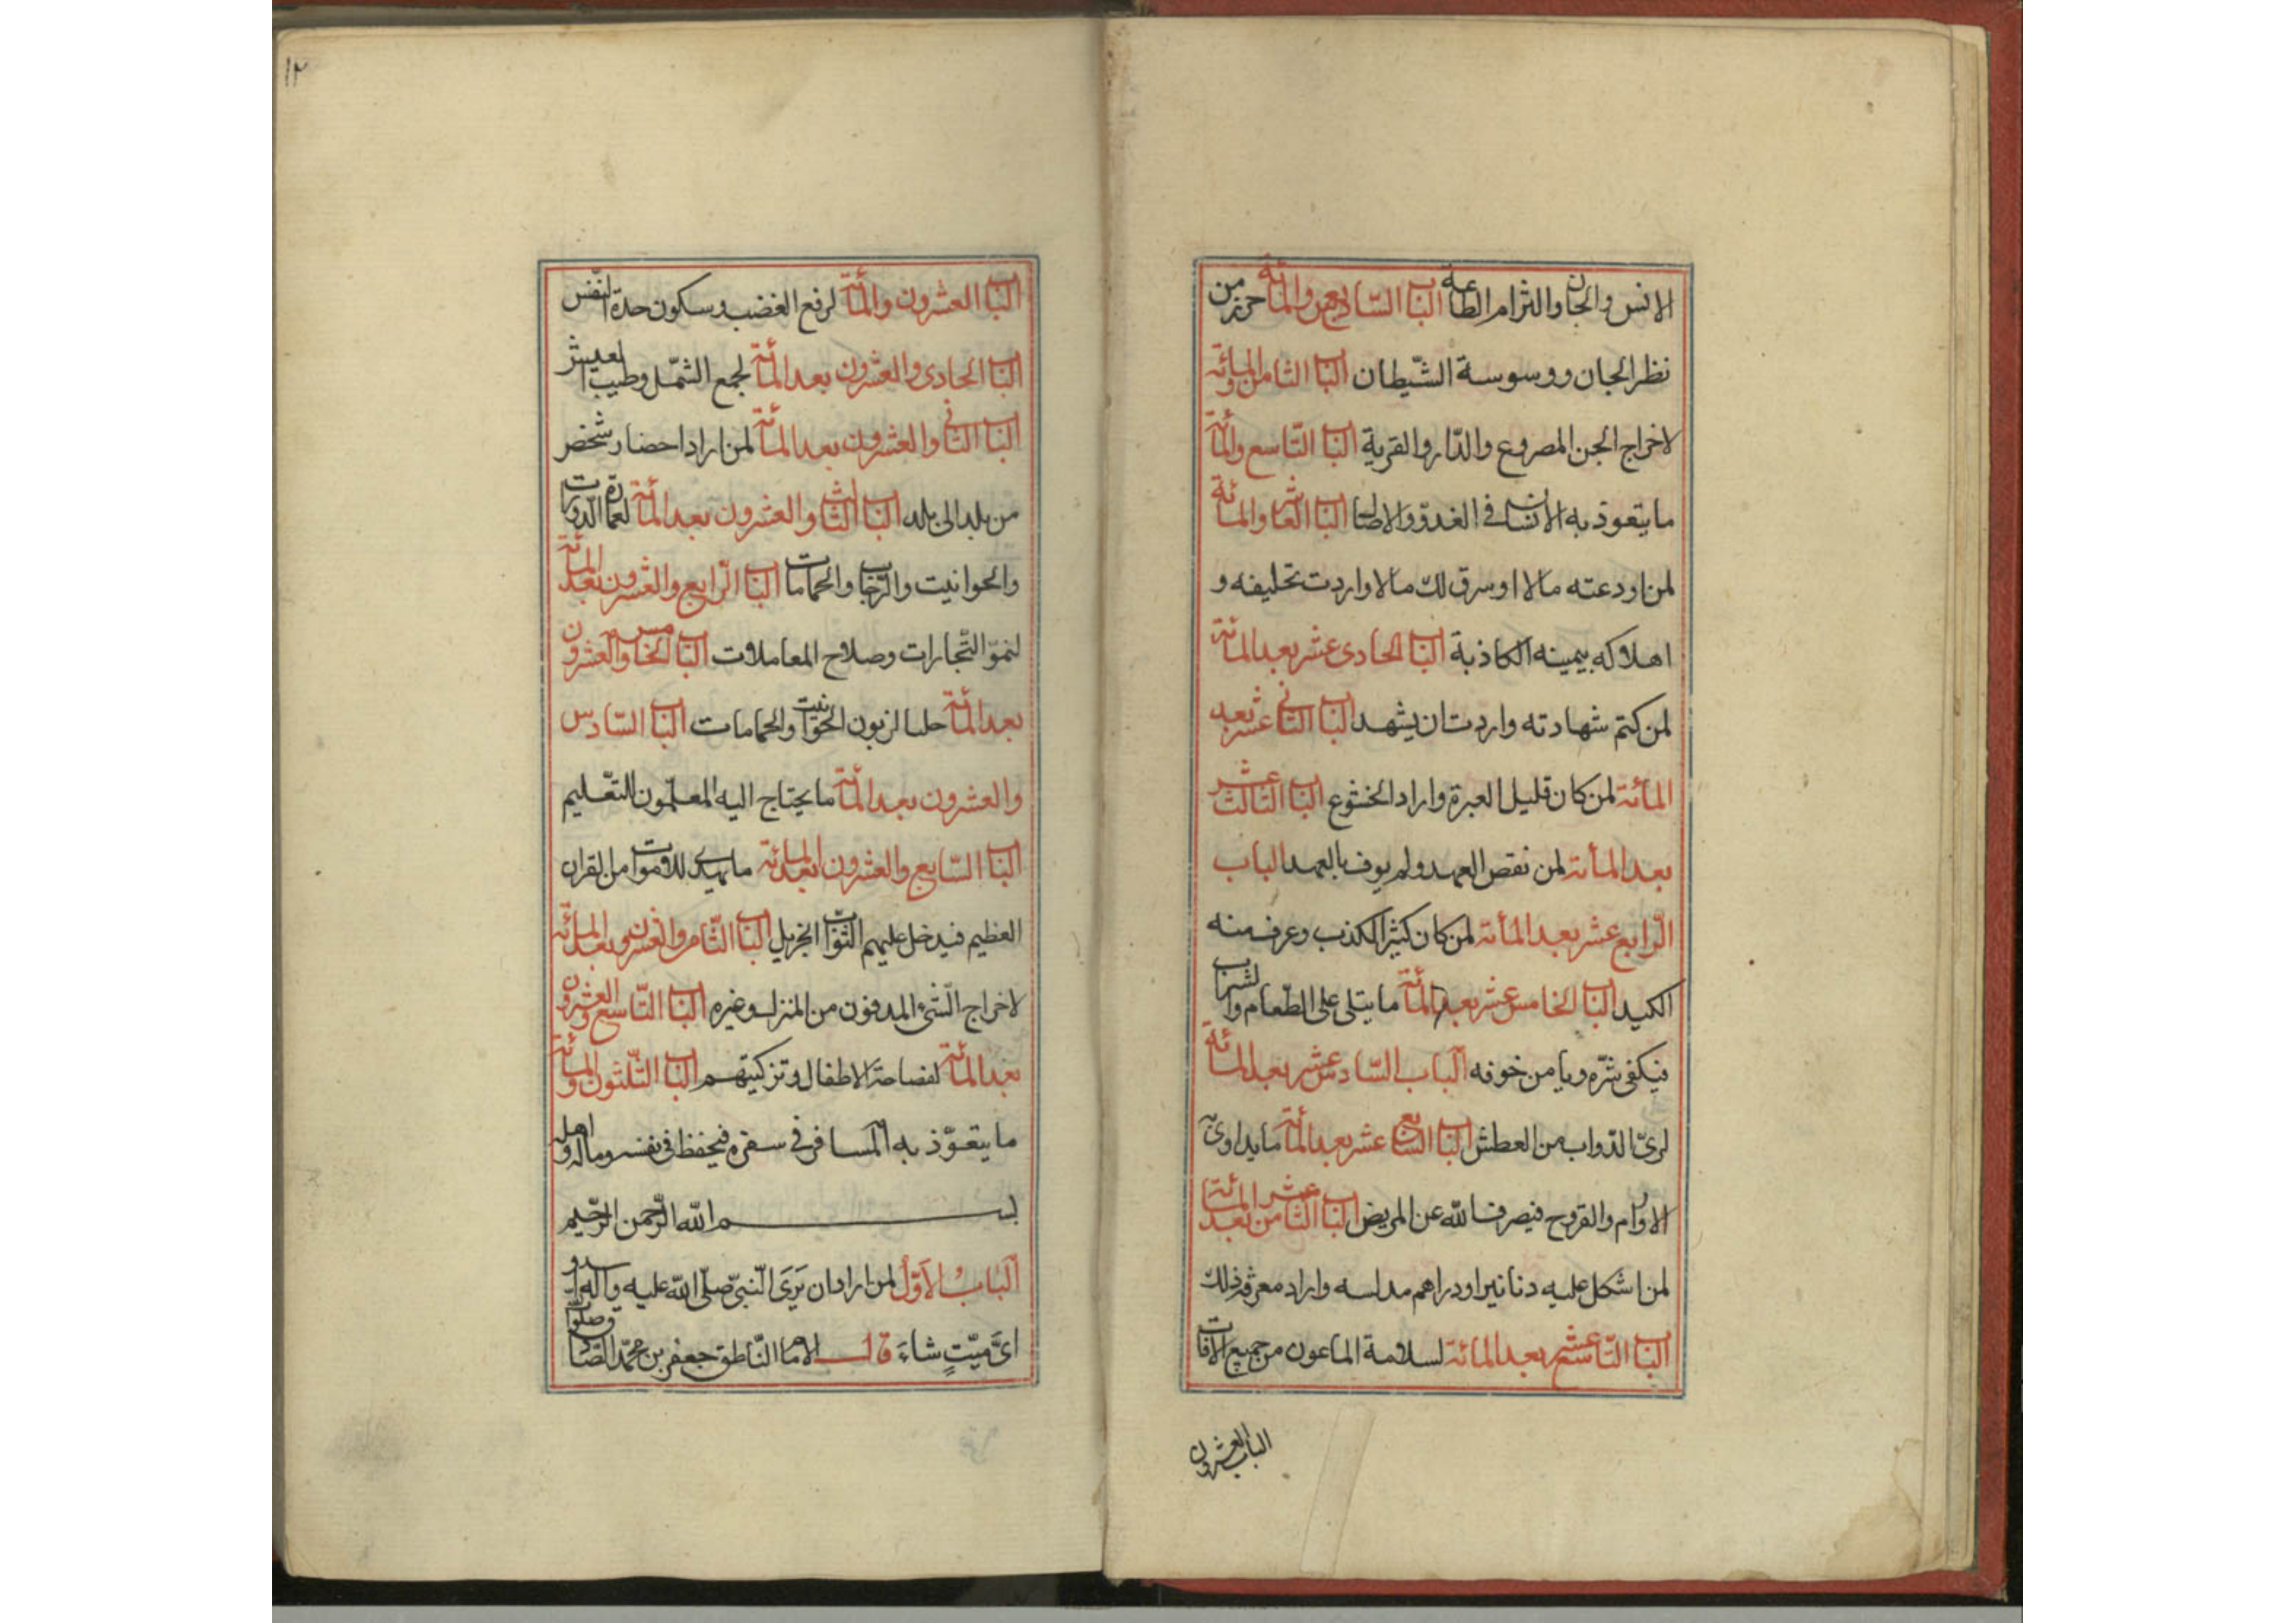 الانس والجان والتزام الطاعة الباب السابع والمائة حرز من
نظر الجان ووسوسة الشّيطان الباب الثامن والمائة
لاخراج الجن المصروع والدّار والقرية الباب التّاسع والمائة
ما يتعوذ به الانسان فى الغدوّ والاصال الباب العاشر والمائة
لمن اودعته مالا او سرق لك مالا واردت تحليفه و
اهلاكه بيمينه الكاذبة الباب الحادى عشر بعد المائة
لمن كتم شهادته واردت ان يشهد الباب الثانى عشر بعد
المأئة لمن كان قليل العبرة واراد الخشوع الباب الثالث عشر
بعد المأئة لمن نقص العهد ولم يوف بالعهد الباب
الرّابع عشر بعد المأئة لمن كان كثير الكذب وعرف منه
الكيد الباب الخامس عشر بعد المأئة ما يتلى على الطّعام والشراب
فيكفى شرّه ويامن خوفه الباب السّادس عشر بعد المائة
لرىّ الدّواب من العطش الباب السابع عشر بعد المأئة ما يداوى به
الاورام والقروح فيصرف الله عن المريض الباب الثامن عشر بعد المائة
لمن اشكل عليه دنانير او دراهم مدلسه واراد معرفة ذلك
الباب التّاسع عشر بعد المائة لسلامة الماعون من جميع الافات
الباب العشرون
١٢
الباب العشرون والمأئة لرفع الغضب وسكون حدة النّفس
الباب الحادى والعشرون بعد المأئة لجمع الشّمل وطيب العيش
الباب الثانى والعشرون بعد المأئة لمن اراد احضار شخص
من بلد الى بلد الباب الثالث والعشرون بعد المأئة لعمارة الدورات
والحوانيت والرّحاب والحمامات الباب الرّابع والعشرون بعد المائة
لنموّ التّجارات وصلاح المعاملات الباب الخامس والعشرون
بعد المأئة جلبا لزبون الحوانيت والحمامات الباب السّادس
والعشرون بعد المأئة ما يحتاج اليه المعلّمون للتّعليم
الباب السّابع والعشرون بعد المائة ما يهدى للاموات من القران
العظيم فيدخل عليهم الثّواب الجزيل الباب الثّامن والعشرون بعد المائة
لاخراج الشّىء المدفون من المنزل وغيره الباب التّاسع والعشرون
بعد المأئة لفصاحة الاطفال وتزكيتهم الباب الثّلثون والمائة
ما يتعوّذ به المسافر فى سفره فيحفظ فى نفسه وماله واهله
بسم الله الرّحمن الرّحيم
الباب الاوّل لمن اراد ان يرى النّبىّ صلّى الله عليه واله او
اىّ ميّتٍ شاءَ قال الامام النّاطق جعفر بن محمّد الصّادق